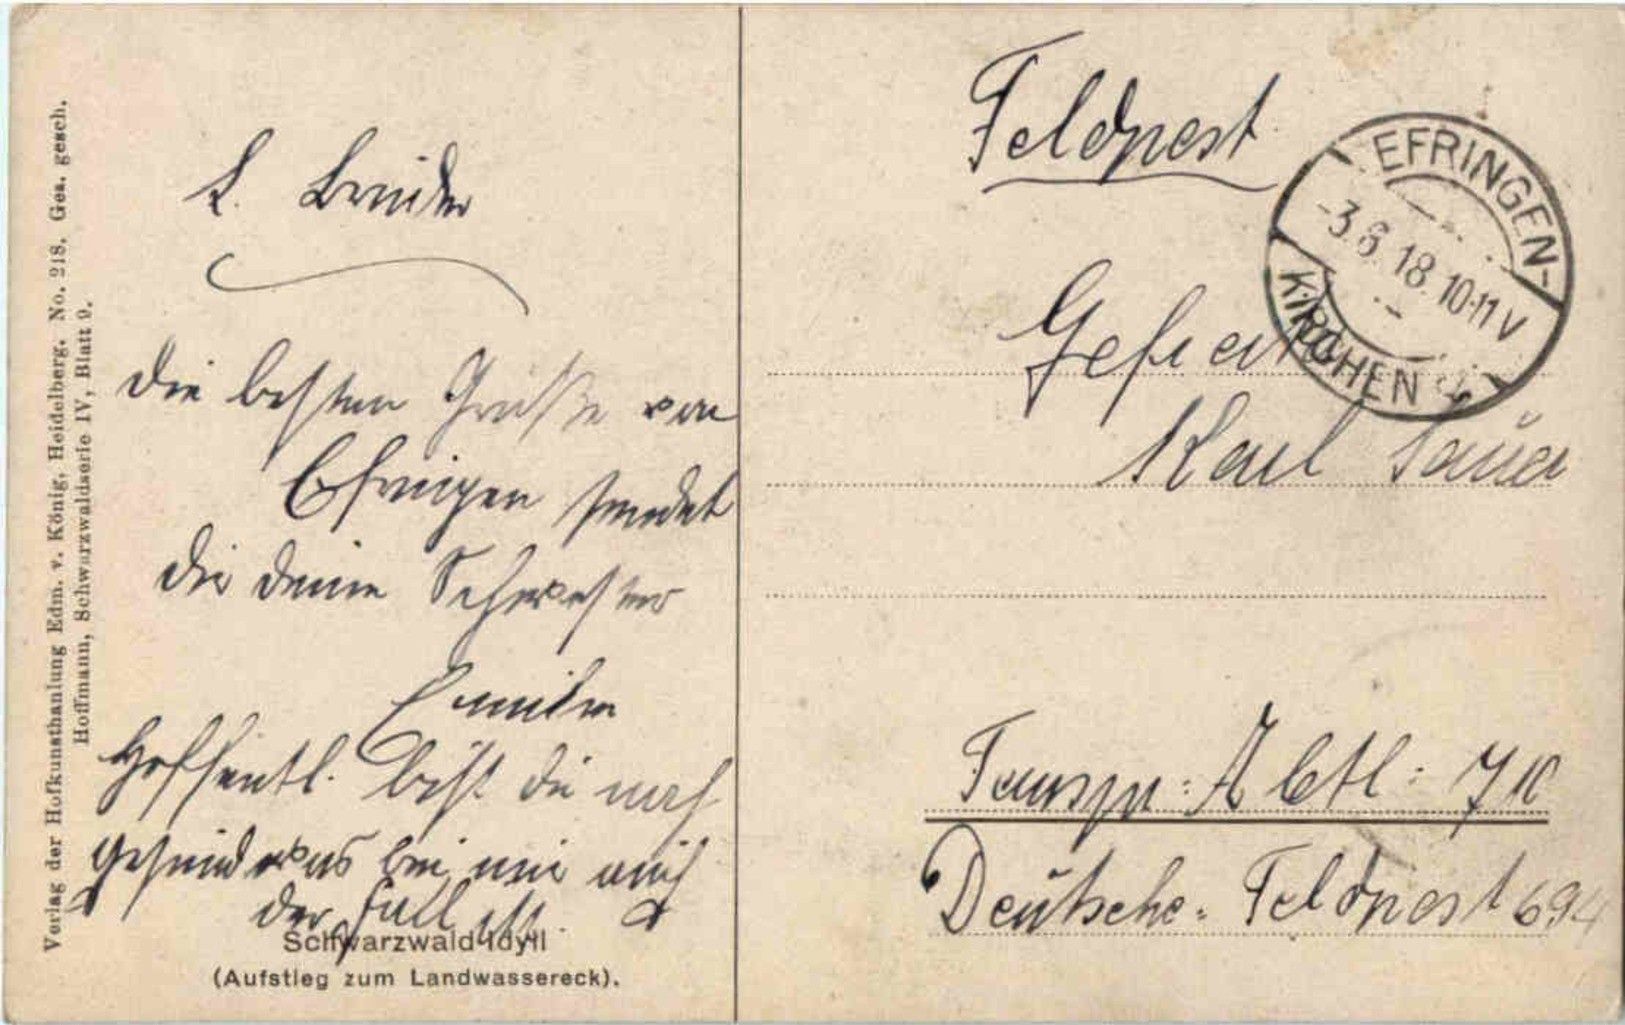 Verlag der Hofkunsthanlung Edm. v. König, Heidelberg. No. 218. Ges. gesch.
Hoffmann, Schwarzwaldserie IV, Blatt 9.
L. Bruder
die besten Grüße von
Efringen sendet
dir deine Schwester
Emilie
Hoffentl. bist du noch
gesund was bei mir auch
der Fall ist.
Schwarzwald-Idyll
(Aufstieg zum Landwassereck).
Feldpost
EFRINGEN-
-3.6.18. 10-11 V
KIRCHEN
Gefreiter
Karl Sauer
Transpr: Abtl:
Deutsche- Feldpost 694